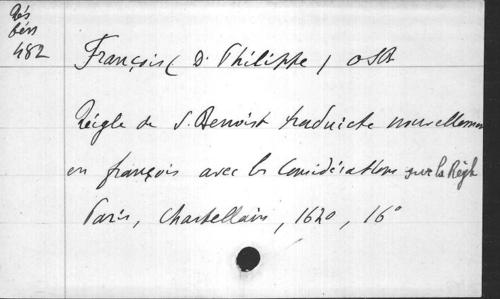 Rés
bén
482
François ( D. Philippe ) OSB
Règle de S. Benoist traduicte nouvellement
en françois avec les Considérations sur la Règle
Paris, Chastellain, 1620, 16°